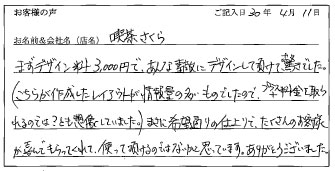 お客様の声 ご記入日 30年 4月 11日
お名前&会社名(店名) 喫茶さくら
まずデザイン料 3,000円で、あんな素敵にデザインして頂けて驚きでした。
(こちらが作成したレイアウトが情報量の多いものでしたので、料金を取ら
れるのでは?とも想像していました。)まさに希望通りの仕上りで、たくさんのお客様
が喜んでもらってくれて、使って頂けるのではないかと思っています。ありがとうございました。